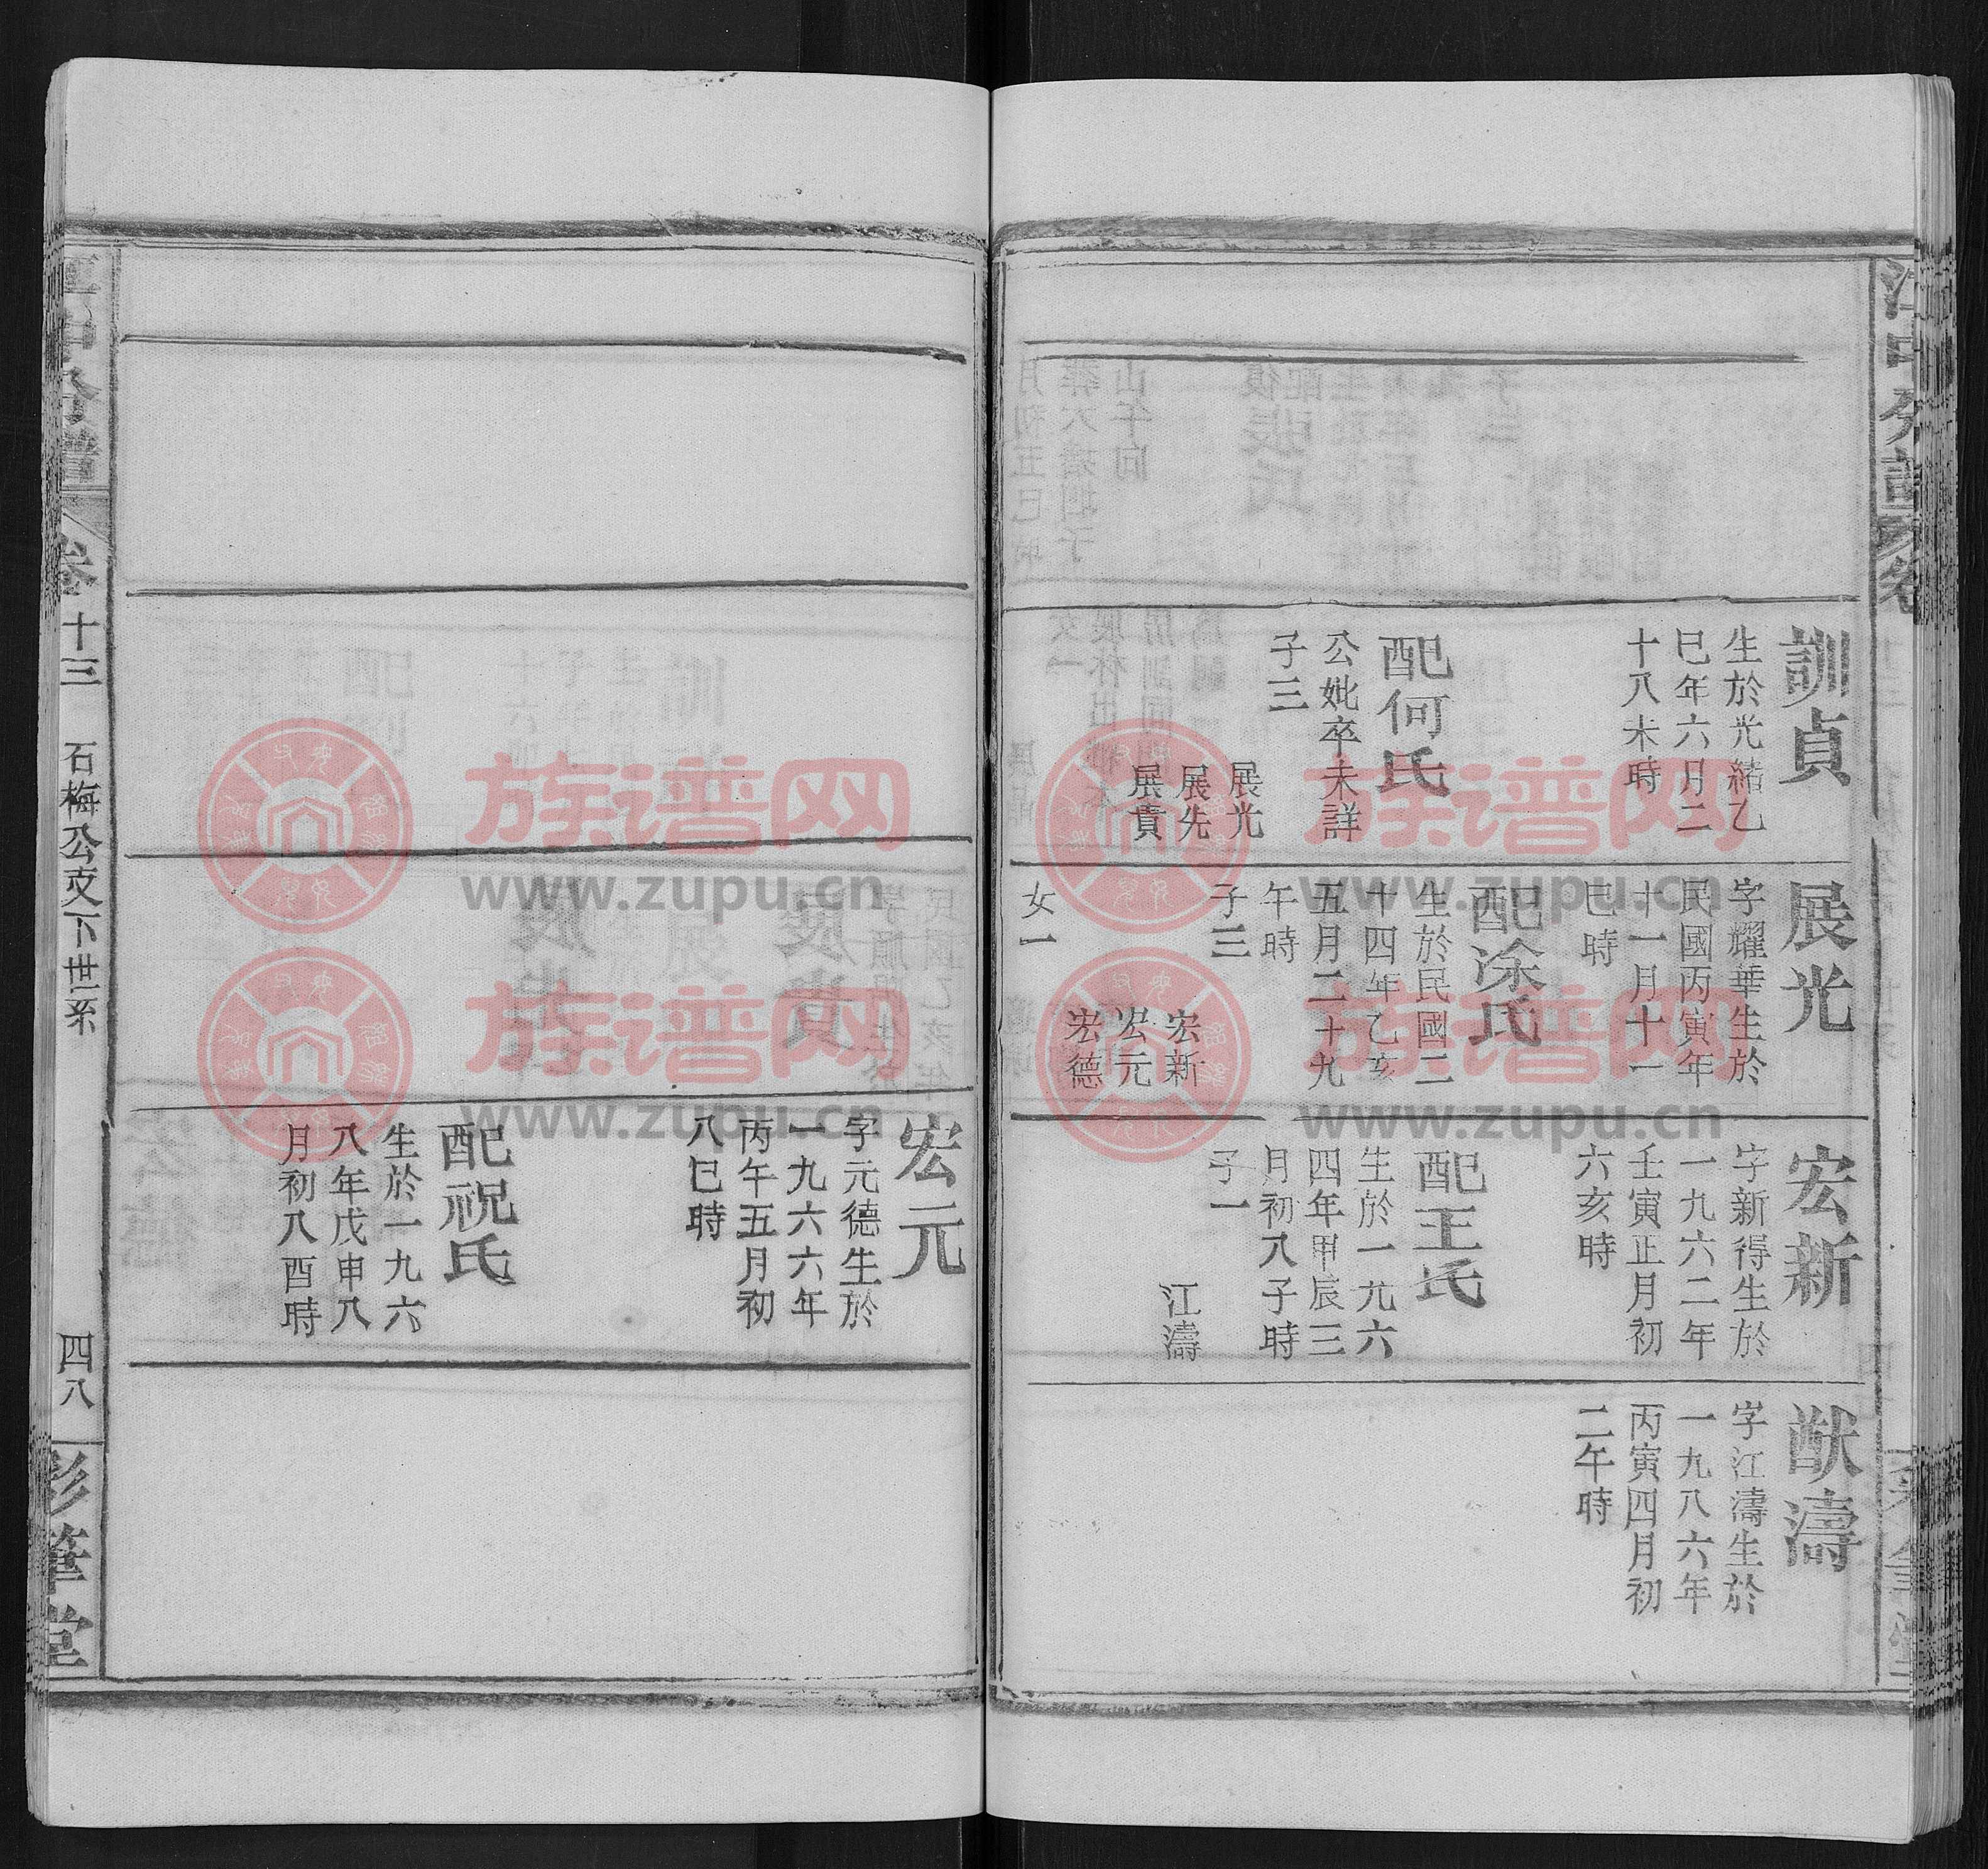 訓貞
生於光緒乙
巳年六月二
十八未時
配何氏
公妣卒未詳
子三
展光
展先
展貴
展光
字耀華生於
民國丙寅年
十一月十一
巳時
配涂氏
生於民國二
十四年乙亥
五月二十九
午時
子三
宏新
宏元
宏德
女一
宏新
字新得生於
一九六二年
壬寅正月初
六亥時
配王氏
生於一九六
四年甲辰三
月初八子時
子一
江濤
猷濤
字江濤生於
一九八六年
丙寅四月初
二午時
宏元
字元德生於
一九六六年
丙午五月初
八巳時
配祝氏
生於一九六
八年戊申八
月初八酉時
分譜
卷十三
石梅公支下世系
四八
彩筆堂
族谱网
www.zupu.cn
族谱网
www.zupu.cn
族谱网
www.zupu.cn
族谱网
www.zupu.cn